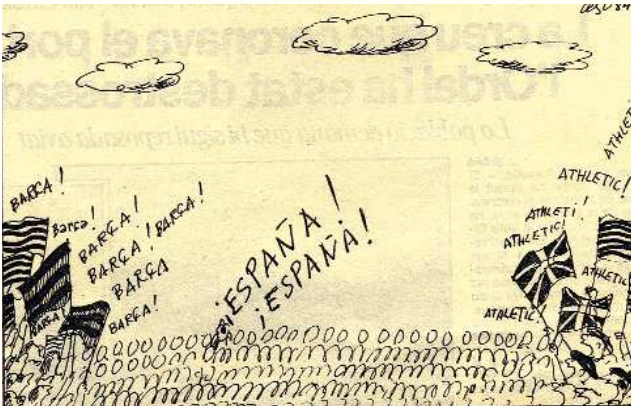 BARÇA!
Barça!
BARÇA!
BARÇA!
BARÇA!
BARÇA!
BARÇA
BARÇA!
BARÇA!
¡ESPAÑA!
¡ESPAÑA!
ATHLETIC
ATHLETIC!
ATHLETI!
ATHLETIC!
ATHLETIC
ATHLETIC!